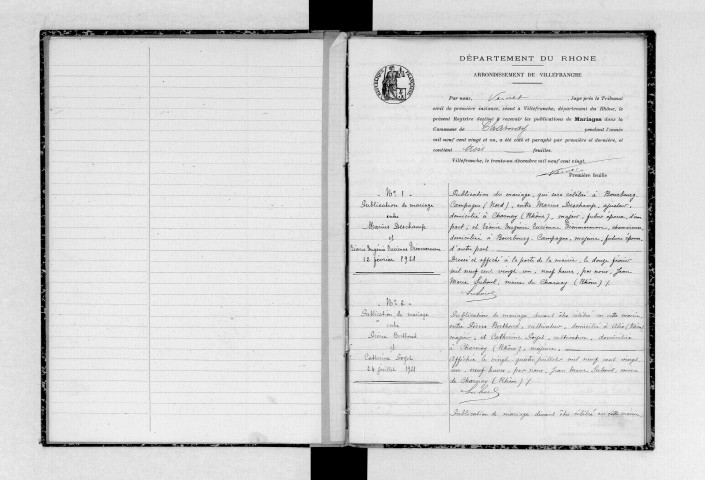 DÉPARTEMENT DU RHONE
ARRONDISSEMENT DE VILLEFRANCHE
Par nous, Juge près le Tribunal
civil de première instance, séant à Villefranche, département du Rhône, le
présent Registre destiné à recevoir les publications de Mariages dans la
Commune de Charnay pendant l'année
mil neuf cent vingt et un, a été coté et paraphé par première et dernière, et
contient feuilles.
Villefranche, le trente-un décembre mil neuf cent vingt.
Première feuille
N° 1
Publication de mariage
entre
Marius Deschamp
et
Eugénie Lucienne
12 février 1921
Publication de mariage, qui sera célébré à Bourbourg
Campagne (Nord), entre Marius Deschamp,
domicilié à Charnay (Rhône), majeur, futur époux, d'une
part, et Eugénie Lucienne
domiciliée à Bourbourg Campagne, majeure, future épouse,
d'autre part
Dressé et affiché à la porte de la mairie, le douze février
mil neuf cent vingt un, neuf heures, par nous, Jean
Marie maire de Charnay (Rhône) /.
N° 2
Publication de mariage
entre
Pierre Berthoud
et
Catherine
24 juillet 1921
Publication de mariage devant être célébré en cette mairie
entre Pierre Berthoud, cultivateur, domicilié à (Rhône)
majeur, et Catherine cultivatrice, domiciliée
à Charnay (Rhône), majeure,
Affichée le vingt quatre juillet mil neuf cent vingt
un, neuf heures, par nous, Jean Marie maire
de Charnay (Rhône) /.
Publication de mariage devant être célébré en cette mairie